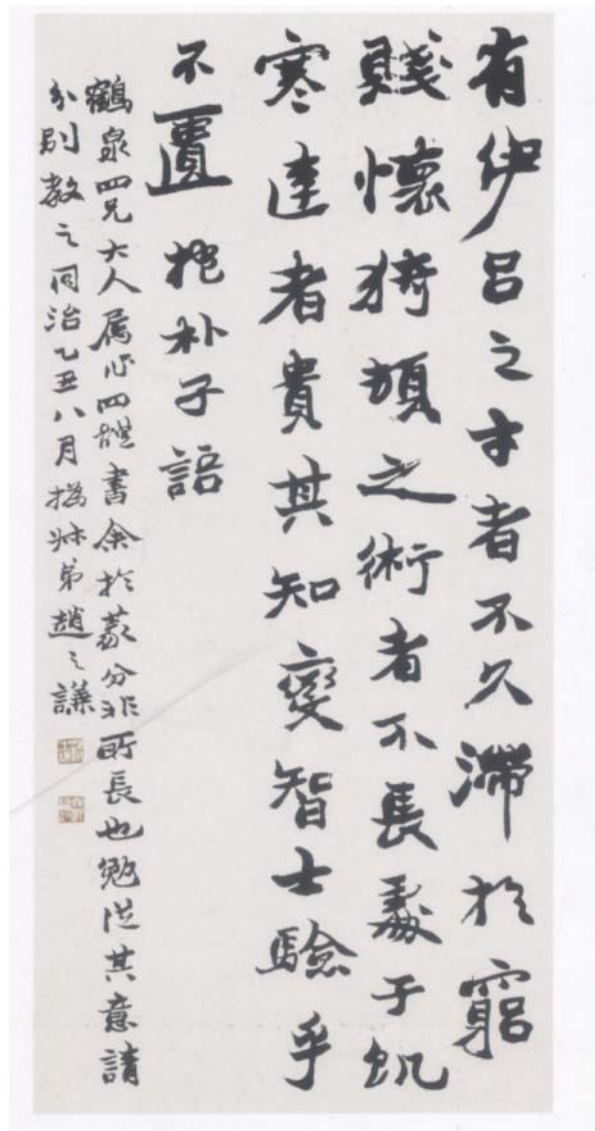 有伊呂之才者不久滯於窮
賤懷猗頓之術者不長處于飢
寒達者貴其知變智士驗乎
不匱抱朴子語
鶴泉四兄大人屬作四體書余於篆分非所長也勉從其意請
分別教之同治乙丑八月撝叔弟趙之謙